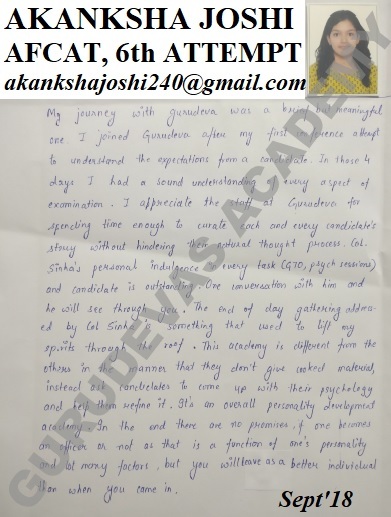 AKANKSHA JOSHI
AFCAT, 6th ATTEMPT
akankshajoshi240@gmail.com
My journey with gurudeva was a brief but meaningful
one. I joined Gurudeva after my first conference attempt
to understand the expectations from a candidate. In those 4
days I had a sound understanding of every aspect of
examination. I appreciate the staff at Gurudeva for
spending time enough to curate each and every candidate's
story without hindering their natural thought process. Col.
Sinha's personal indulgence in every task (GTO, psych sessions)
and candidate is outstanding. One conversation with him and
he will see through you. The end of day gathering addres-
ed by Col Sinha is something that used to lift my
spirits through the roof. This academy is different from the
others in the manner that they don't give cooked material,
instead ask candidates to come up with their psychology
and help them refine it. It's an overall personality development
academy. In the end there are no premises, if one becomes
an officer or not as that is a function of one's personality
and lot many factors, but you will leave as a better individual
than when you came in.
Sept'18
GURUDEVAS ACADEMY